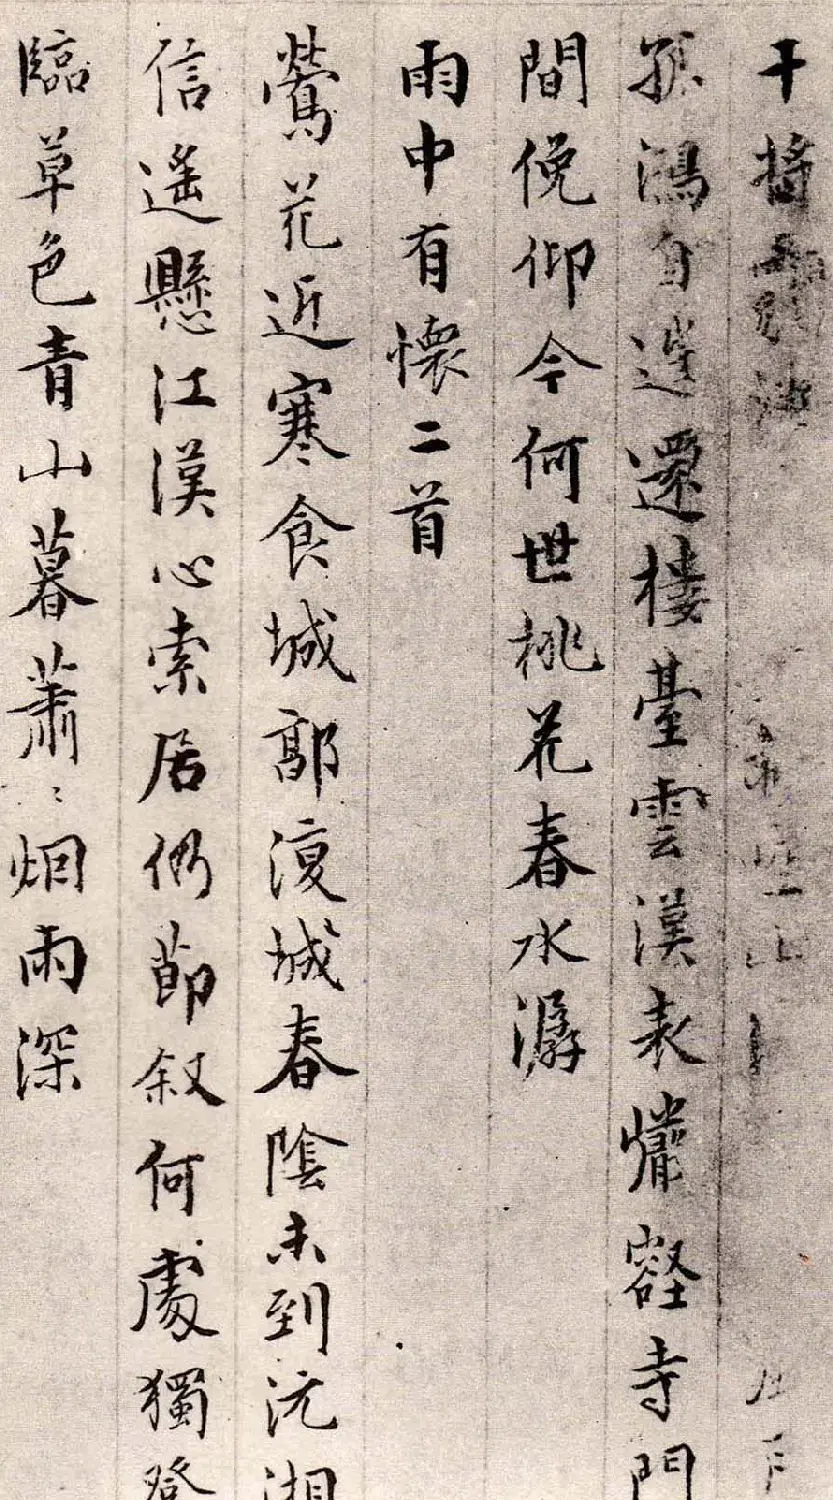 干將
孤鴻自還樓臺雲漢表寺門
間俛仰今何世桃花春水潺
雨中有懷二首
鶯花近寒食城郭復城春陰未到沅湘
信遙懸江漢心索居仍節叙何處獨登
臨草色青山暮蕭〻烟雨深